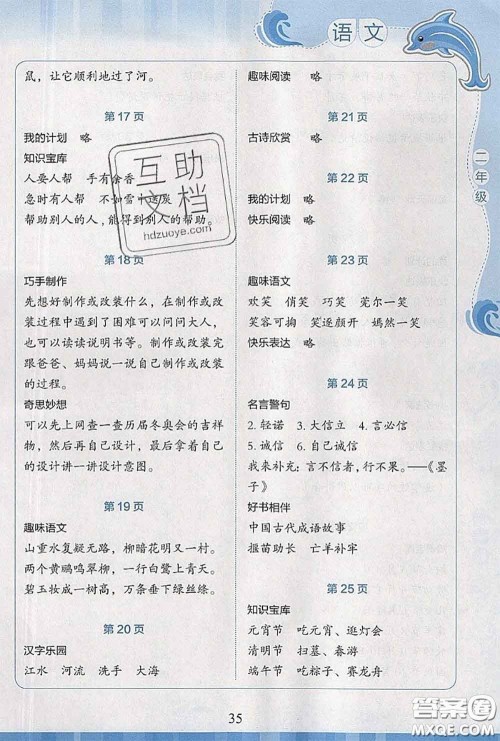 语文
二年级
鼠，让它顺利地过了河。
第17页
我的计划 略
知识宝库
人要人帮 手有余香
急时有人帮 不如雪中送炭
帮助别人的人，能得到别人的帮助。
第18页
巧手制作
先想好制作或改装什么，在制作或
改装过程中遇到了困难可以问问大人，
也可以读读说明书等。制作或改装完
跟爸爸、妈妈说一说自己制作或改装
的过程。
奇思妙想
可以先上网查一查历届冬奥会的吉祥
物，然后再自己设计，最后拿着自己
的设计讲一讲设计意图。
第19页
趣味语文
山重水复疑无路，柳暗花明又一村。
两个黄鹂鸣翠柳，一行白鹭上青天。
碧玉妆成一树高，万条垂下绿丝绦。
第20页
汉字乐园
江水 河流 洗手 大海
趣味阅读 略
第21页
古诗欣赏 略
第22页
我的计划 略
快乐阅读 略
第23页
趣味语文
欢笑 俏笑 巧笑 莞尔一笑
笑容可掬 笑逐颜开 嫣然一笑
快乐表达 略
第24页
名言警句
2. 轻诺 3. 大信立 4. 言必信
5. 诚信 6. 自己诚信
我来补充：言不信者，行不果。——《墨
子》
好书相伴
中国古代成语故事
揠苗助长 亡羊补牢
第25页
知识宝库
元宵节 吃元宵、逛灯会
清明节 扫墓、春游
端午节 吃粽子、赛龙舟
35
互助
文档
hdzuoye.com
答案圈
MXQE.COM